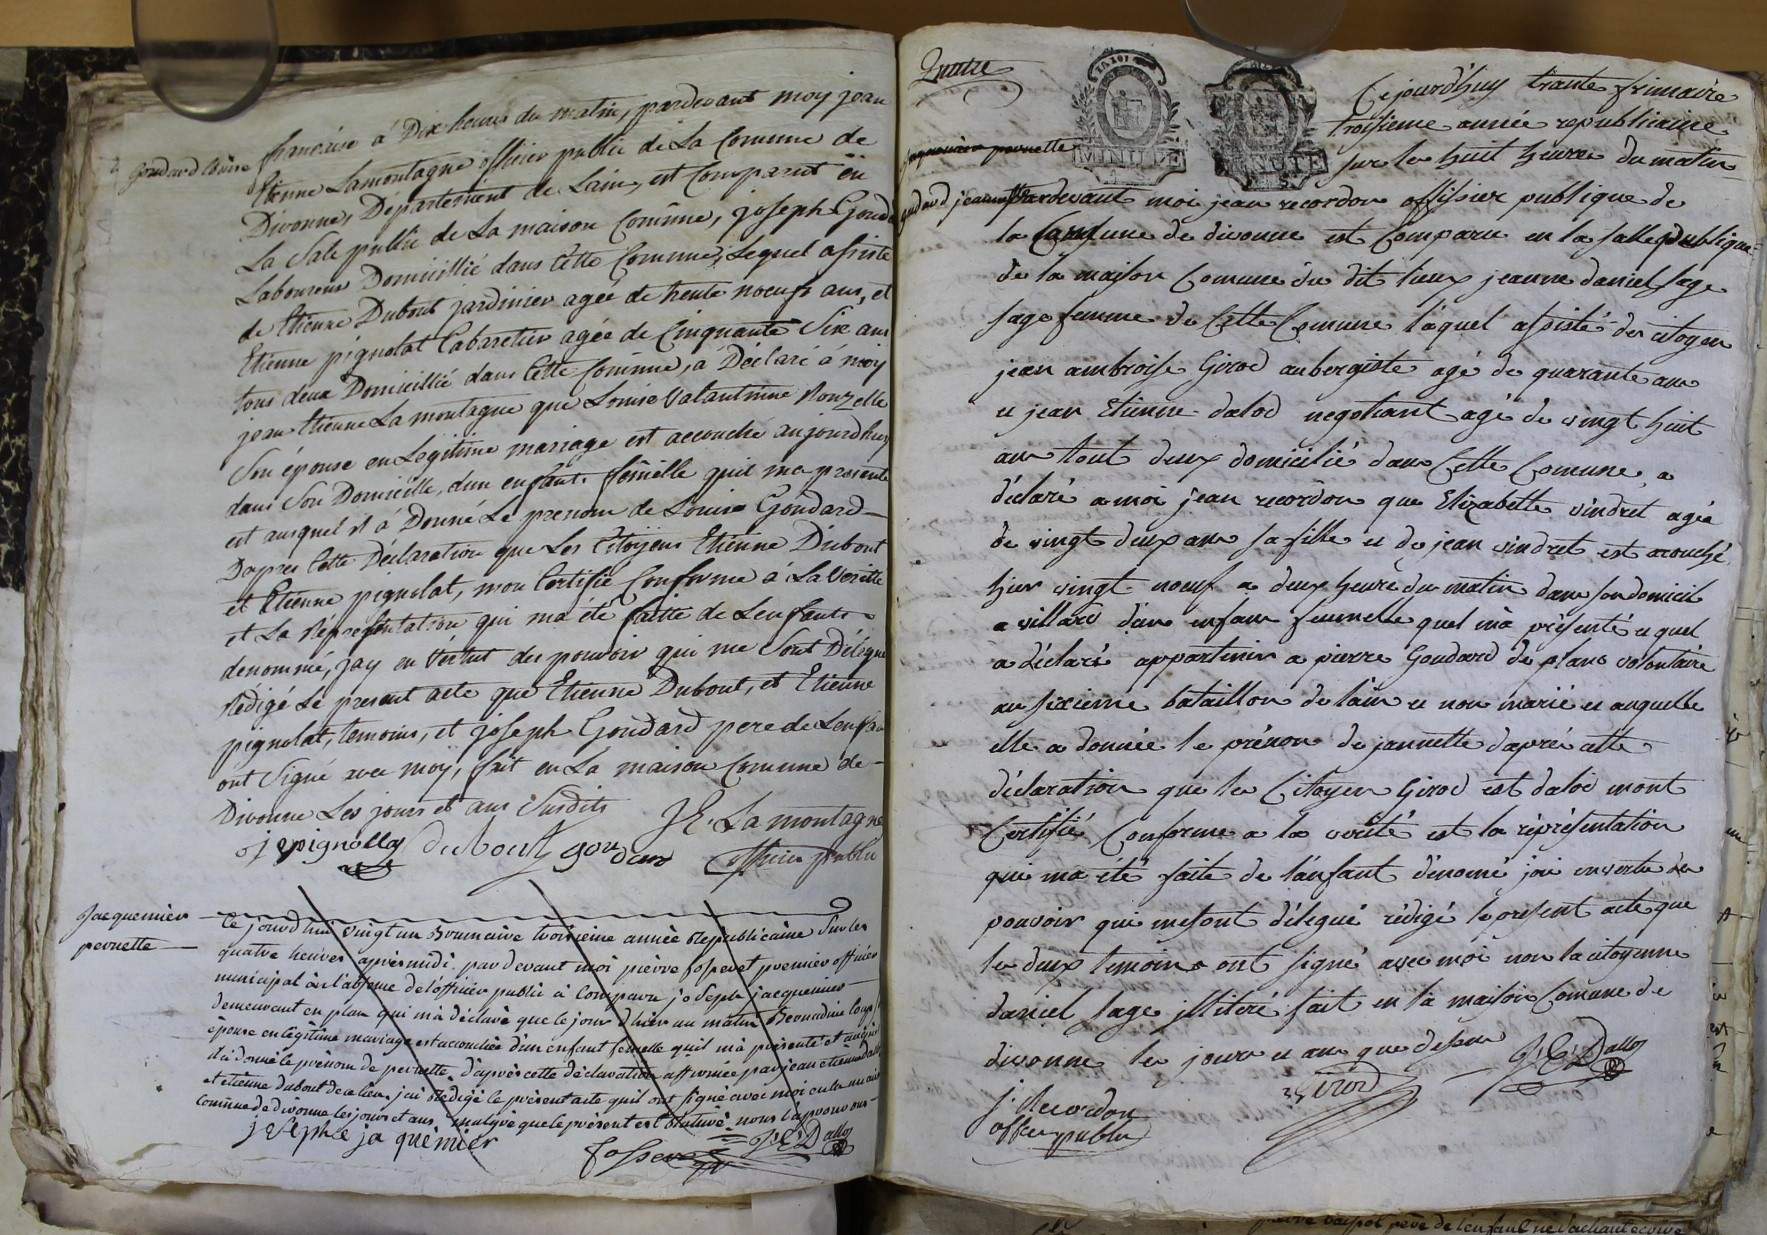 Goudard Louise
frimaire à Dix heures du matin, pardevant moy jean
Etienne Lamontagne officier public de La Commune de
Divonne, Departement de Lain, est Comparut en
La Sale public de La maison Comune, joseph Goudard
Laboureur Domicillié dans Cette Commune, Lequel assisté
de Etienne Dubout jardinier agée de trente noeuf ans, et
Etienne pignolat Cabaretier agée de Cinquante Six ans
tous deux Domicillié dans Cette Comune, a Déclaré à moy
jean Etienne La montagne que Louise Valantinne Rouzelle
Son épouse en Légitime mariage est accouché aujourdhuy
dans Son Domicille, d'un enfant fémelle quil ma présenté
et auquel il à Donné Le prenom de Louise Goudard
Dapres Cette Déclaration que Les Citoyens Etienne Dubout
et Etienne pignolat, mon Certifié Conforme á La Verité
et La Représentation qui ma été faitte de Lenfant
denommé, jay en Vertut des pouvoir qui me Sont Délégué
Rédigé Le present acte que Etienne Dubout, et Etienne
pignolat, temoins, et joseph Goudard pere de Lenfan
ont Signé avec moy, fait en La maison Comune de
Divonne Les jours et ans Susdits
J E. La montagne
j e pignollaz dubout goudard officier public
Jacquemier
pernette
Ce jourd'hui vingt un Brumaire troisieme année Republicaine Sur les
quatre heures après midi par devant moi pierre fosseret premier officier
municipal en l'absence de l'officier public à Comparu joseph jacquemier
demeurant en plan qui m'a déclaré que le jour d'hier au matin Bernardine
épouse en légitime mariage est accouchée d'un enfant femelle quil m'a présenté et auquel
il a donné le prénom de pernette D'après cette déclaration affirmée par jean etienne dallo
et etienne dubout de ce lieu j'ai Rédigé le présent acte quil ont Signé avec moi en la maison
Comune de divonne les jours et ans malgré que le présent est Bâtonné nous l'approuvons
joseph jaquemier fosseret J: E: Dalloz
Quatre
LA LOI
MINUTE MINUTE
Jaquemier pernette
goudard jeannette
Cejourd'huy trante frimaire
troisieme année republicaine
sur les huit heures du matin
Pardevant moi jean recordon offisier publique de
la Comune de divonne est Comparu en la salle publique
de la maison Comune du dit lieux jeanne daniel sage
sage femme de Cette Comune laquel assisté des citoyen
jean ambroise Girod aubergiste agé de quarante ans
et jean Etienne dalod negotiant agé de vingt huit
ans tout deux domicilié dans Cette Comune, a
déclaré a moi jean recordon que Elizabette vindret agée
de vingt deux ans sa fille et de jean vindret est acouché
hier vingt noeuf a deux heure du matin dans son domicil
a villard d'une enfan femelle quel m'à présenté et quel
a déclaré appartenir a pierre Goudard de plans volontaire
au sixieme bataillon de lain et non marié et auquelle
elle a donnée le prénom de jannette daprès cette
déclaration que les Citoyen Girod est dalod mont
Certifié Conforme a la verité est la représentation
qui ma été faite de l'anfant dénomé jai en vertu des
pouvoir qui me sont délegué rédigé le présent acte que
les deux témoins ont signé avec moi non la citoyenne
daniel sage illiteré fait en la maison Comune de
divonne les jours et ans que desus
J. E. Dalloz
Girod
j. Recordon
officier public